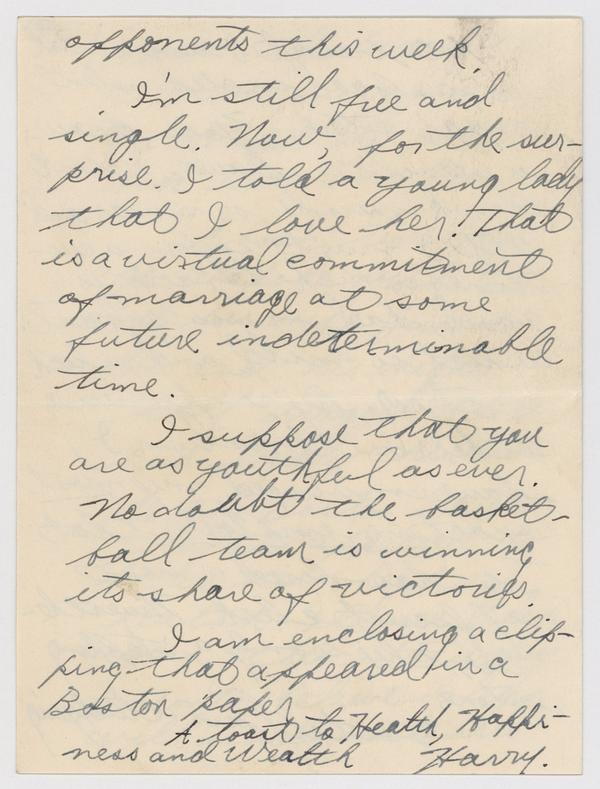 opponents this week.
I'm still free and
single. Now, for the sur-
prise. I told a young lady
that I love her! That
is a virtual commitment
of marriage at some
future indeterminable
time.
I suppose that you
are as youthful as ever.
No doubt the basket-
ball team is winning
its share of victories.
I am enclosing a clip-
ping that appeared in a
Boston paper.
A toast to Health, Happi-
ness and Wealth Harry.